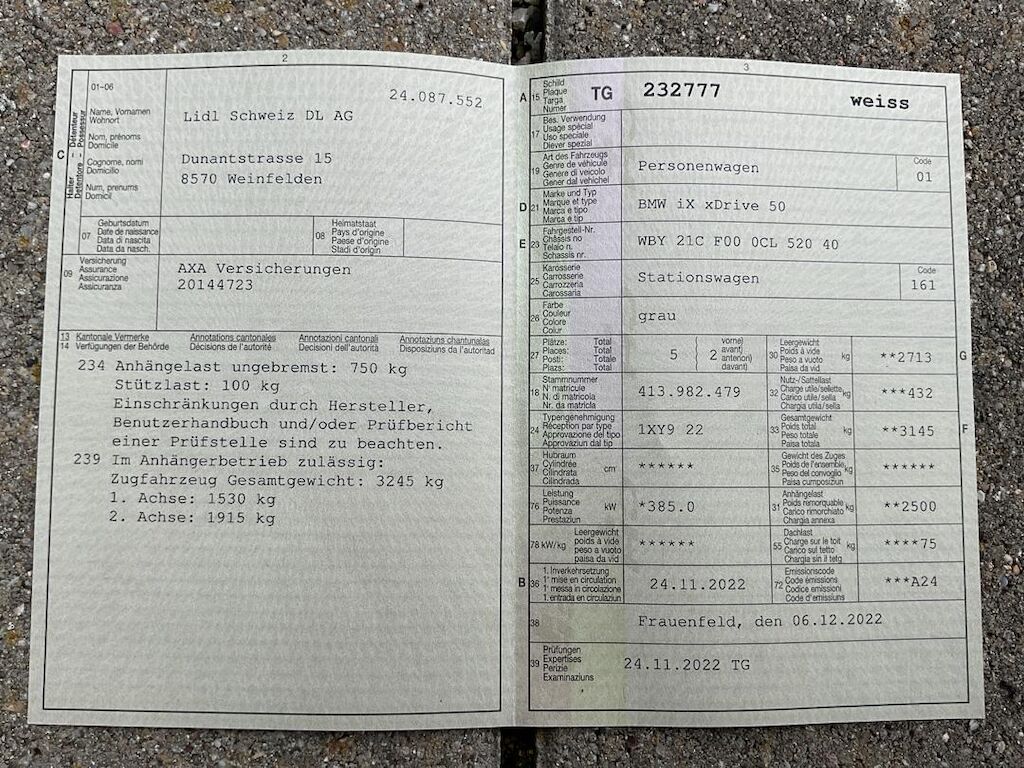 2
01-06
24.087.552
C
Halter – Détenteur
Detentore – Possessur
Name, Vornamen
Wohnort
Nom, prénoms
Domicile
Cognome, nomi
Domicilio
Num, prenums
Domicil
Lidl Schweiz DL AG
Dunantstrasse 15
8570 Weinfelden
07
Geburtsdatum
Date de naissance
Data di nascita
Data da nasch.
08
Heimatstaat
Pays d'origine
Paese d'origine
Stadi d'origin
09
Versicherung
Assurance
Assicurazione
Assicuranza
AXA Versicherungen
20144723
13 Kantonale Vermerke Annotations cantonales Annotazioni cantonali Annotaziuns chantunalas
14 Verfügungen der Behörde Décisions de l'autorité Decisioni dell'autorità Disposiziuns da l'autoritad
234 Anhängelast ungebremst: 750 kg
Stützlast: 100 kg
Einschränkungen durch Hersteller,
Benutzerhandbuch und/oder Prüfbericht
einer Prüfstelle sind zu beachten.
239 Im Anhängerbetrieb zulässig:
Zugfahrzeug Gesamtgewicht: 3245 kg
1. Achse: 1530 kg
2. Achse: 1915 kg
3
A 15
Schild
Plaque
Targa
Numer
TG 232777 weiss
17
Bes. Verwendung
Usage spécial
Uso speciale
Diever spezial
19
Art des Fahrzeugs
Genre de véhicule
Genere di veicolo
Gener dal vehichel
Personenwagen
Code
01
D 21
Marke und Typ
Marque et type
Marca e tipo
Marca e tip
BMW iX xDrive 50
E 23
Fahrgestell-Nr.
Châssis no
Telaio n.
Schassis nr.
WBY 21C F00 0CL 520 40
25
Karosserie
Carrosserie
Carrozzeria
Carossaria
Stationswagen
Code
161
26
Farbe
Couleur
Colore
Colur
grau
27
Plätze: Total
Places: Total
Posti: Totale
Plazs: Total
5
2
vorne)
avant)
anteriori)
davant)
30
Leergewicht
Poids à vide
Peso a vuoto
Paisa da vid
kg
**2713
G
18
Stammnummer
N° matricule
N. di matricola
Nr. da matricla
413.982.479
32
Nutz-/Sattellast
Charge utile/sellette
Carico utile/sella
Chargia utila/sella
kg
***432
24
Typengenehmigung
Réception par type
Approvazione del tipo
Approvaziun dal tip
1XY9 22
33
Gesamtgewicht
Poids total
Peso totale
Paisa totala
kg
**3145
F
37
Hubraum
Cylindrée
Cilindrata
Cilindrada
cm³
******
35
Gewicht des Zuges
Poids de l'ensemble
Peso del convoglio
Paisa cumposiziun
kg
******
76
Leistung
Puissance
Potenza
Prestaziun
kW
*385.0
31
Anhängelast
Poids remorquable
Carico rimorchiato
Chargia annexa
kg
**2500
78 kW/kg
Leergewicht
poids à vide
peso a vuoto
paisa da vid
******
55
Dachlast
Charge sur le toit
Carico sul tetto
Chargia sin il tetg
kg
****75
B 36
1. Inverkehrsetzung
1re mise en circulation
1a messa in circolazione
1. entrada en circulaziun
24.11.2022
72
Emissionscode
Code émissions
Codice emissioni
Code d'emissiuns
***A24
38
Frauenfeld, den 06.12.2022
39
Prüfungen
Expertises
Perizie
Examinaziuns
24.11.2022 TG